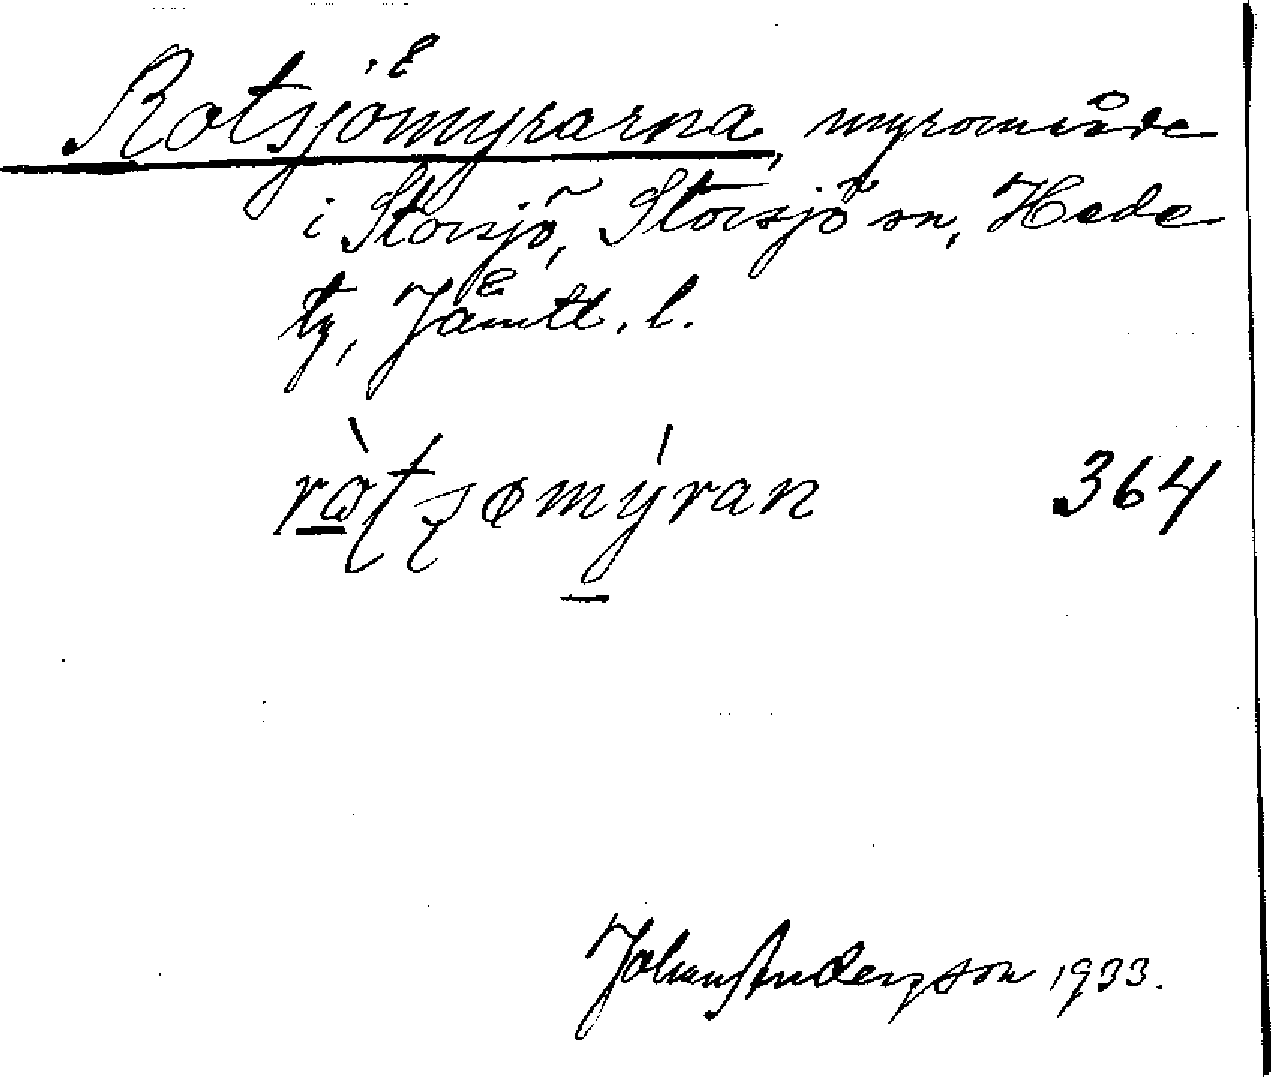 Rotsjömyrarna, myrområde
i Storsjö, Storsjö sn, Hede
tg, Jämtl. l.
ròtʂømýran 364
Johan Anderson 1933.